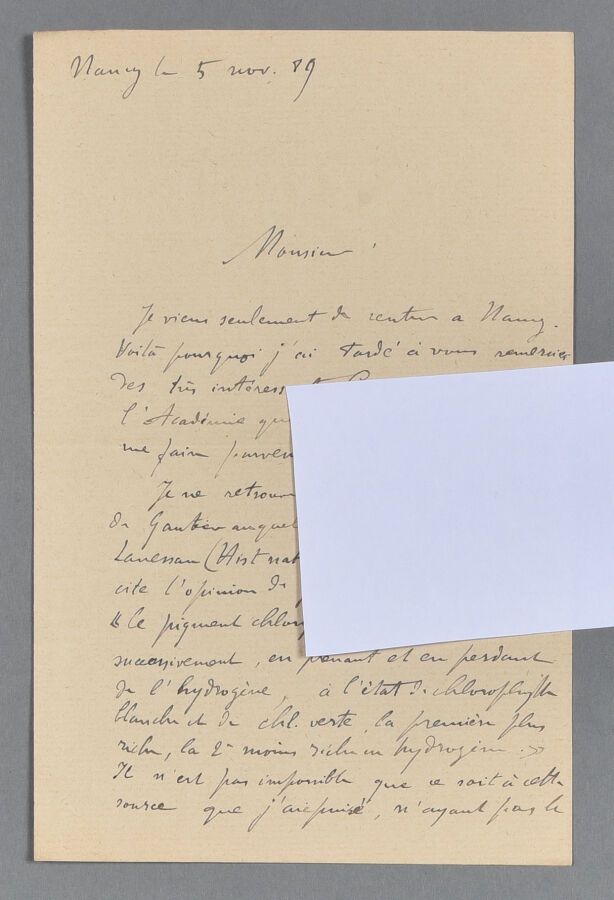 Nancy le 5 nov. 89
Monsieur,
Je viens seulement de rentrer a Nancy.
Voilà pourquoi j'ai tardé à vous remercier
des très intéress
l'Académie que
me faire parven
Je ne retrouve
de Gautier auquel
Lanessan (Hist nat
cite l'opinion de
"le pigment chloro
successivement, en prenant et en perdant
de l'hydrogène, à l'état de chlorophylle
blanche et de chl. verte, la première plus
riche, la 2e moins riche en hydrogène. »
Il n'est pas impossible que ce soit à cette
source que j'aie puisé, n'ayant pas le